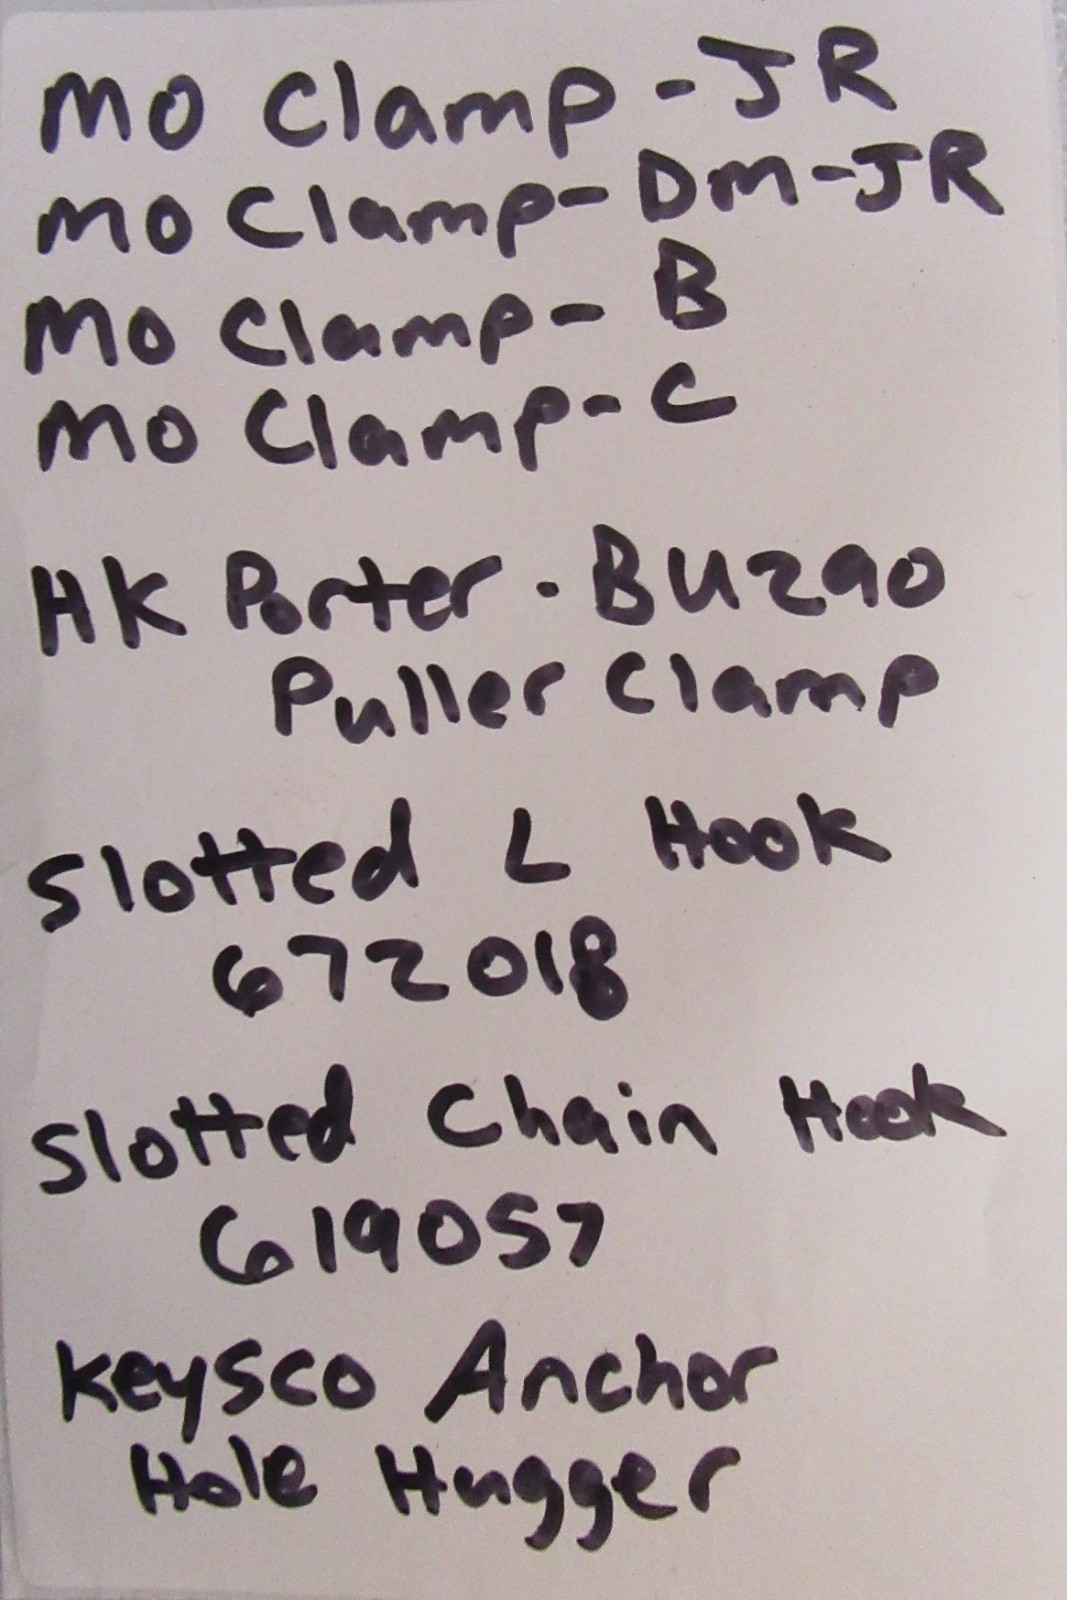 Mo Clamp - JR
Mo Clamp - Dm - JR
Mo Clamp - B
Mo Clamp - C
HK Porter - BU290
Puller Clamp
Slotted L Hook
672018
Slotted Chain Hook
619057
Keysco Anchor
Hole Hugger